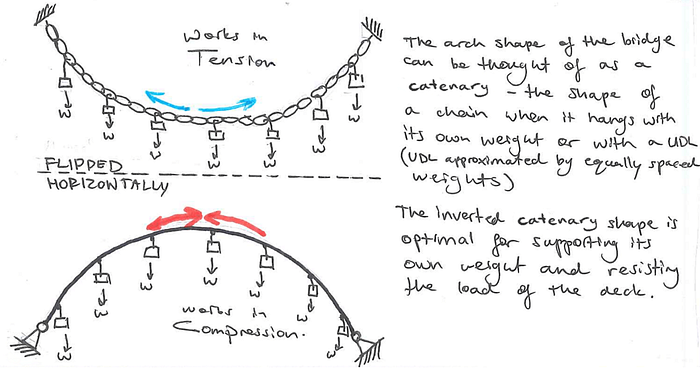 works in
Tension
W
W
W
W
W
W
W
FLIPPED
HORIZONTALLY
W
W
W
W
W
W
W
works in
Compression.
The arch shape of the bridge
can be thought of as a
catenary - the shape of
a chain when it hangs with
its own weight or with a UDL
(UDL approximated by equally spaced
weights)
The inverted catenary shape is
optimal for supporting its
own weight and resisting
the load of the deck.